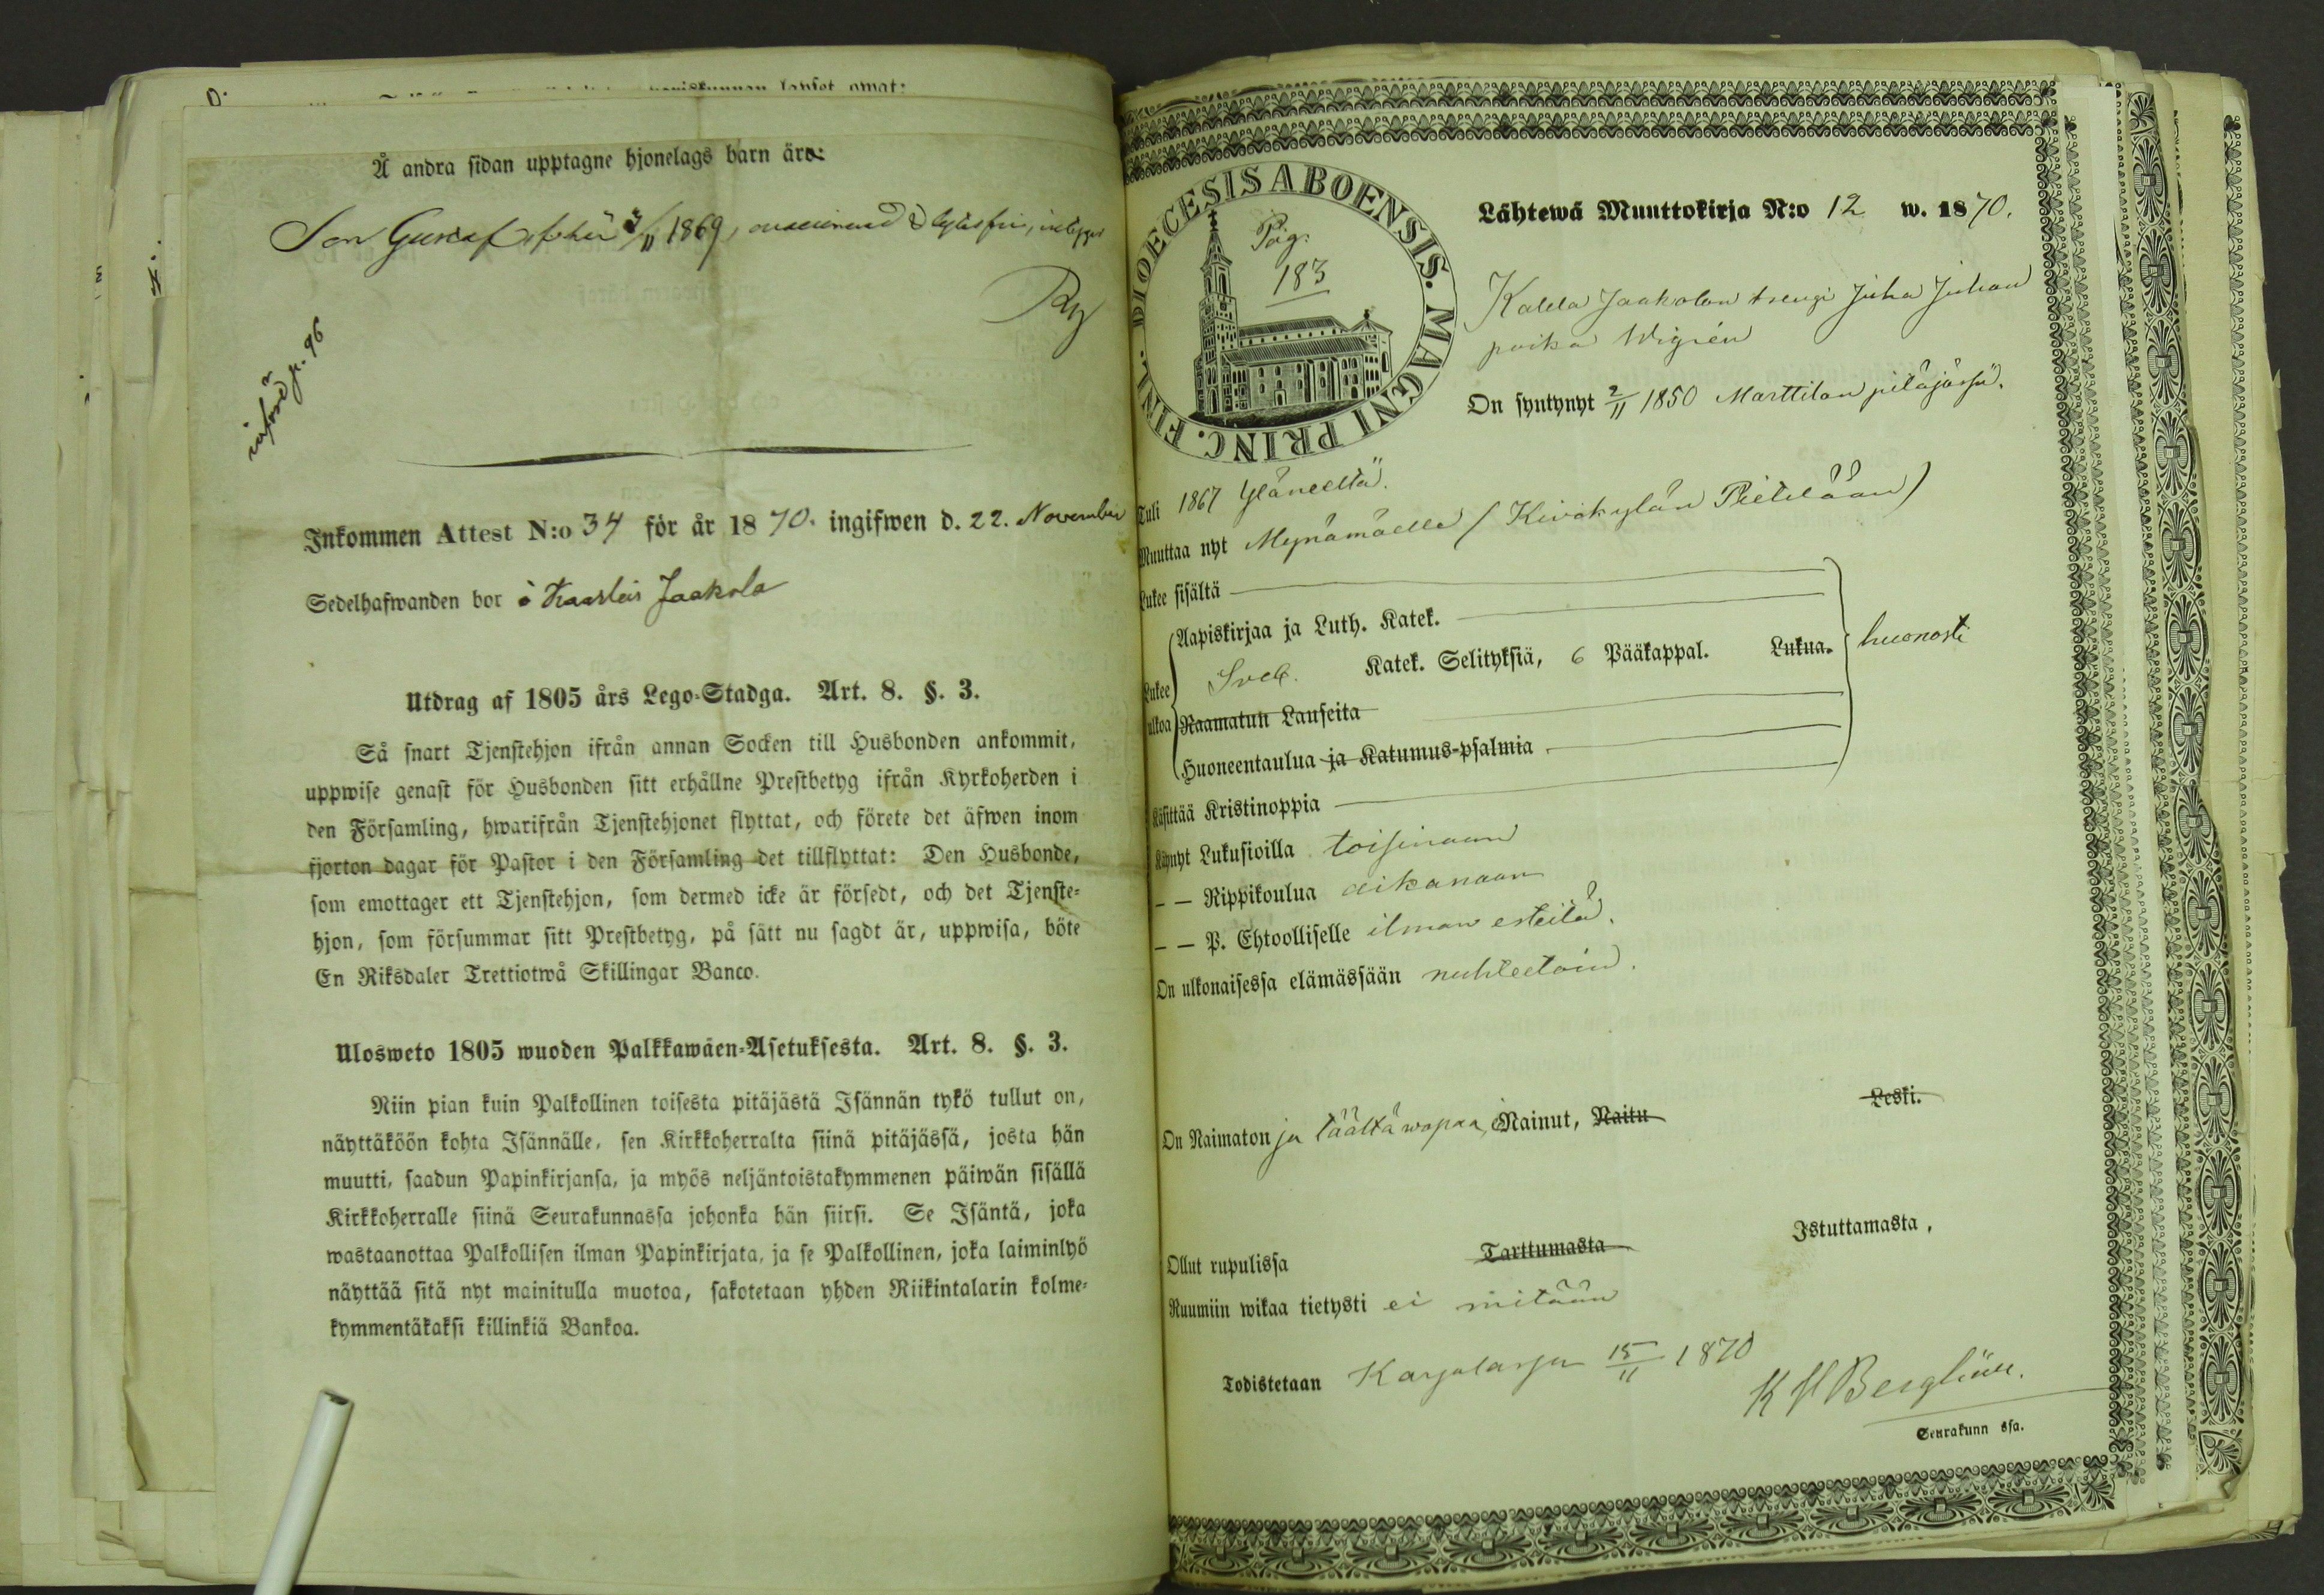 Å andra sidan upptagne hjonelags barn äro:
Son Gustaf 1869,
införd p. 96
Inkommen Attest N:o 34 för år 1870. ingifwen d. 22. November
Sedelhafwanden bor å Jaakola
Utdrag af 1805 års Lego-Stadga. Art. 8. §. 3.
Så snart Tjenstehjon ifrån annan Socken till Husbonden ankommit,
uppwise genast för Husbonden sitt erhållne Prestbetyg ifrån Kyrkoherden i
den Församling, hwarifrån Tjenstehjonet flyttat, och förete det äfwen inom
fjorton dagar för Pastor i den Församling det tillflyttat: Den Husbonde,
som emottager ett Tjenstehjon, som dermed icke är försedt, och det Tjenste-
hjon, som försummar sitt Prestbetyg, på sätt nu sagdt är, uppwisa, böte
En Riksdaler Trettiotwå Skillingar Banco.
Ulosweto 1805 wuoden Palkkawäen-Asetuksesta. Art. 8. §. 3.
Niin pian kuin Palkollinen toisesta pitäjästä Isännän tykö tullut on,
näyttäköön kohta Isännälle, sen Kirkkoherralta siinä pitäjässä, josta hän
muutti, saadun Papinkirjansa, ja myös neljäntoistakymmenen päiwän sisällä
Kirkkoherralle siinä Seurakunnassa johonka hän siirsi. Se Isäntä, joka
wastaanottaa Palkollisen ilman Papinkirjata, ja se Palkollinen, joka laiminlyö
näyttää sitä nyt mainitulla muotoa, sakotetaan yhden Riikintalarin kolme-
kymmentäkaksi killinkiä Bankoa.
DIOECESIS ABOENSIS. MAGNI PRINC. FINL.
Pag.
183
Lähtewä Muuttokirja N:o 12 w. 1870.
Kalela Jaakolan trengi Juha Juhan
poika Wigrén
On syntynyt 2/11 1850 Marttilan pitäjässä.
Tuli 1867 Yläneeltä.
Muuttaa nyt Mynämäelle (Kivikylän Pietilään)
Lukee sisältä
Aapiskirjaa ja Luth. Katek.
Lukee ulkoa
Sveb. Katek. Selityksiä, 6 Pääkappal. Lukua. huonosti
Raamatun Lauseita
Huoneentaulua ja Katumus-psalmia
Käsittää Kristinoppia
Käynyt Lukusioilla toisinaan
— — Rippikoulua aikanaan
— — P. Ehtoolliselle ilman esteitä.
On ulkonaisessa elämässään nuhteetoin.
On Naimaton ja täältä wapaa, Nainut, Naitu Leski.
Ollut rupulissa Tarttumasta Istuttamasta,
Ruumiin wikaa tietysti ei mitään
Todistetaan Karjalassa 15/11 1870
K H Berglöw.
Seurakunn ssa.